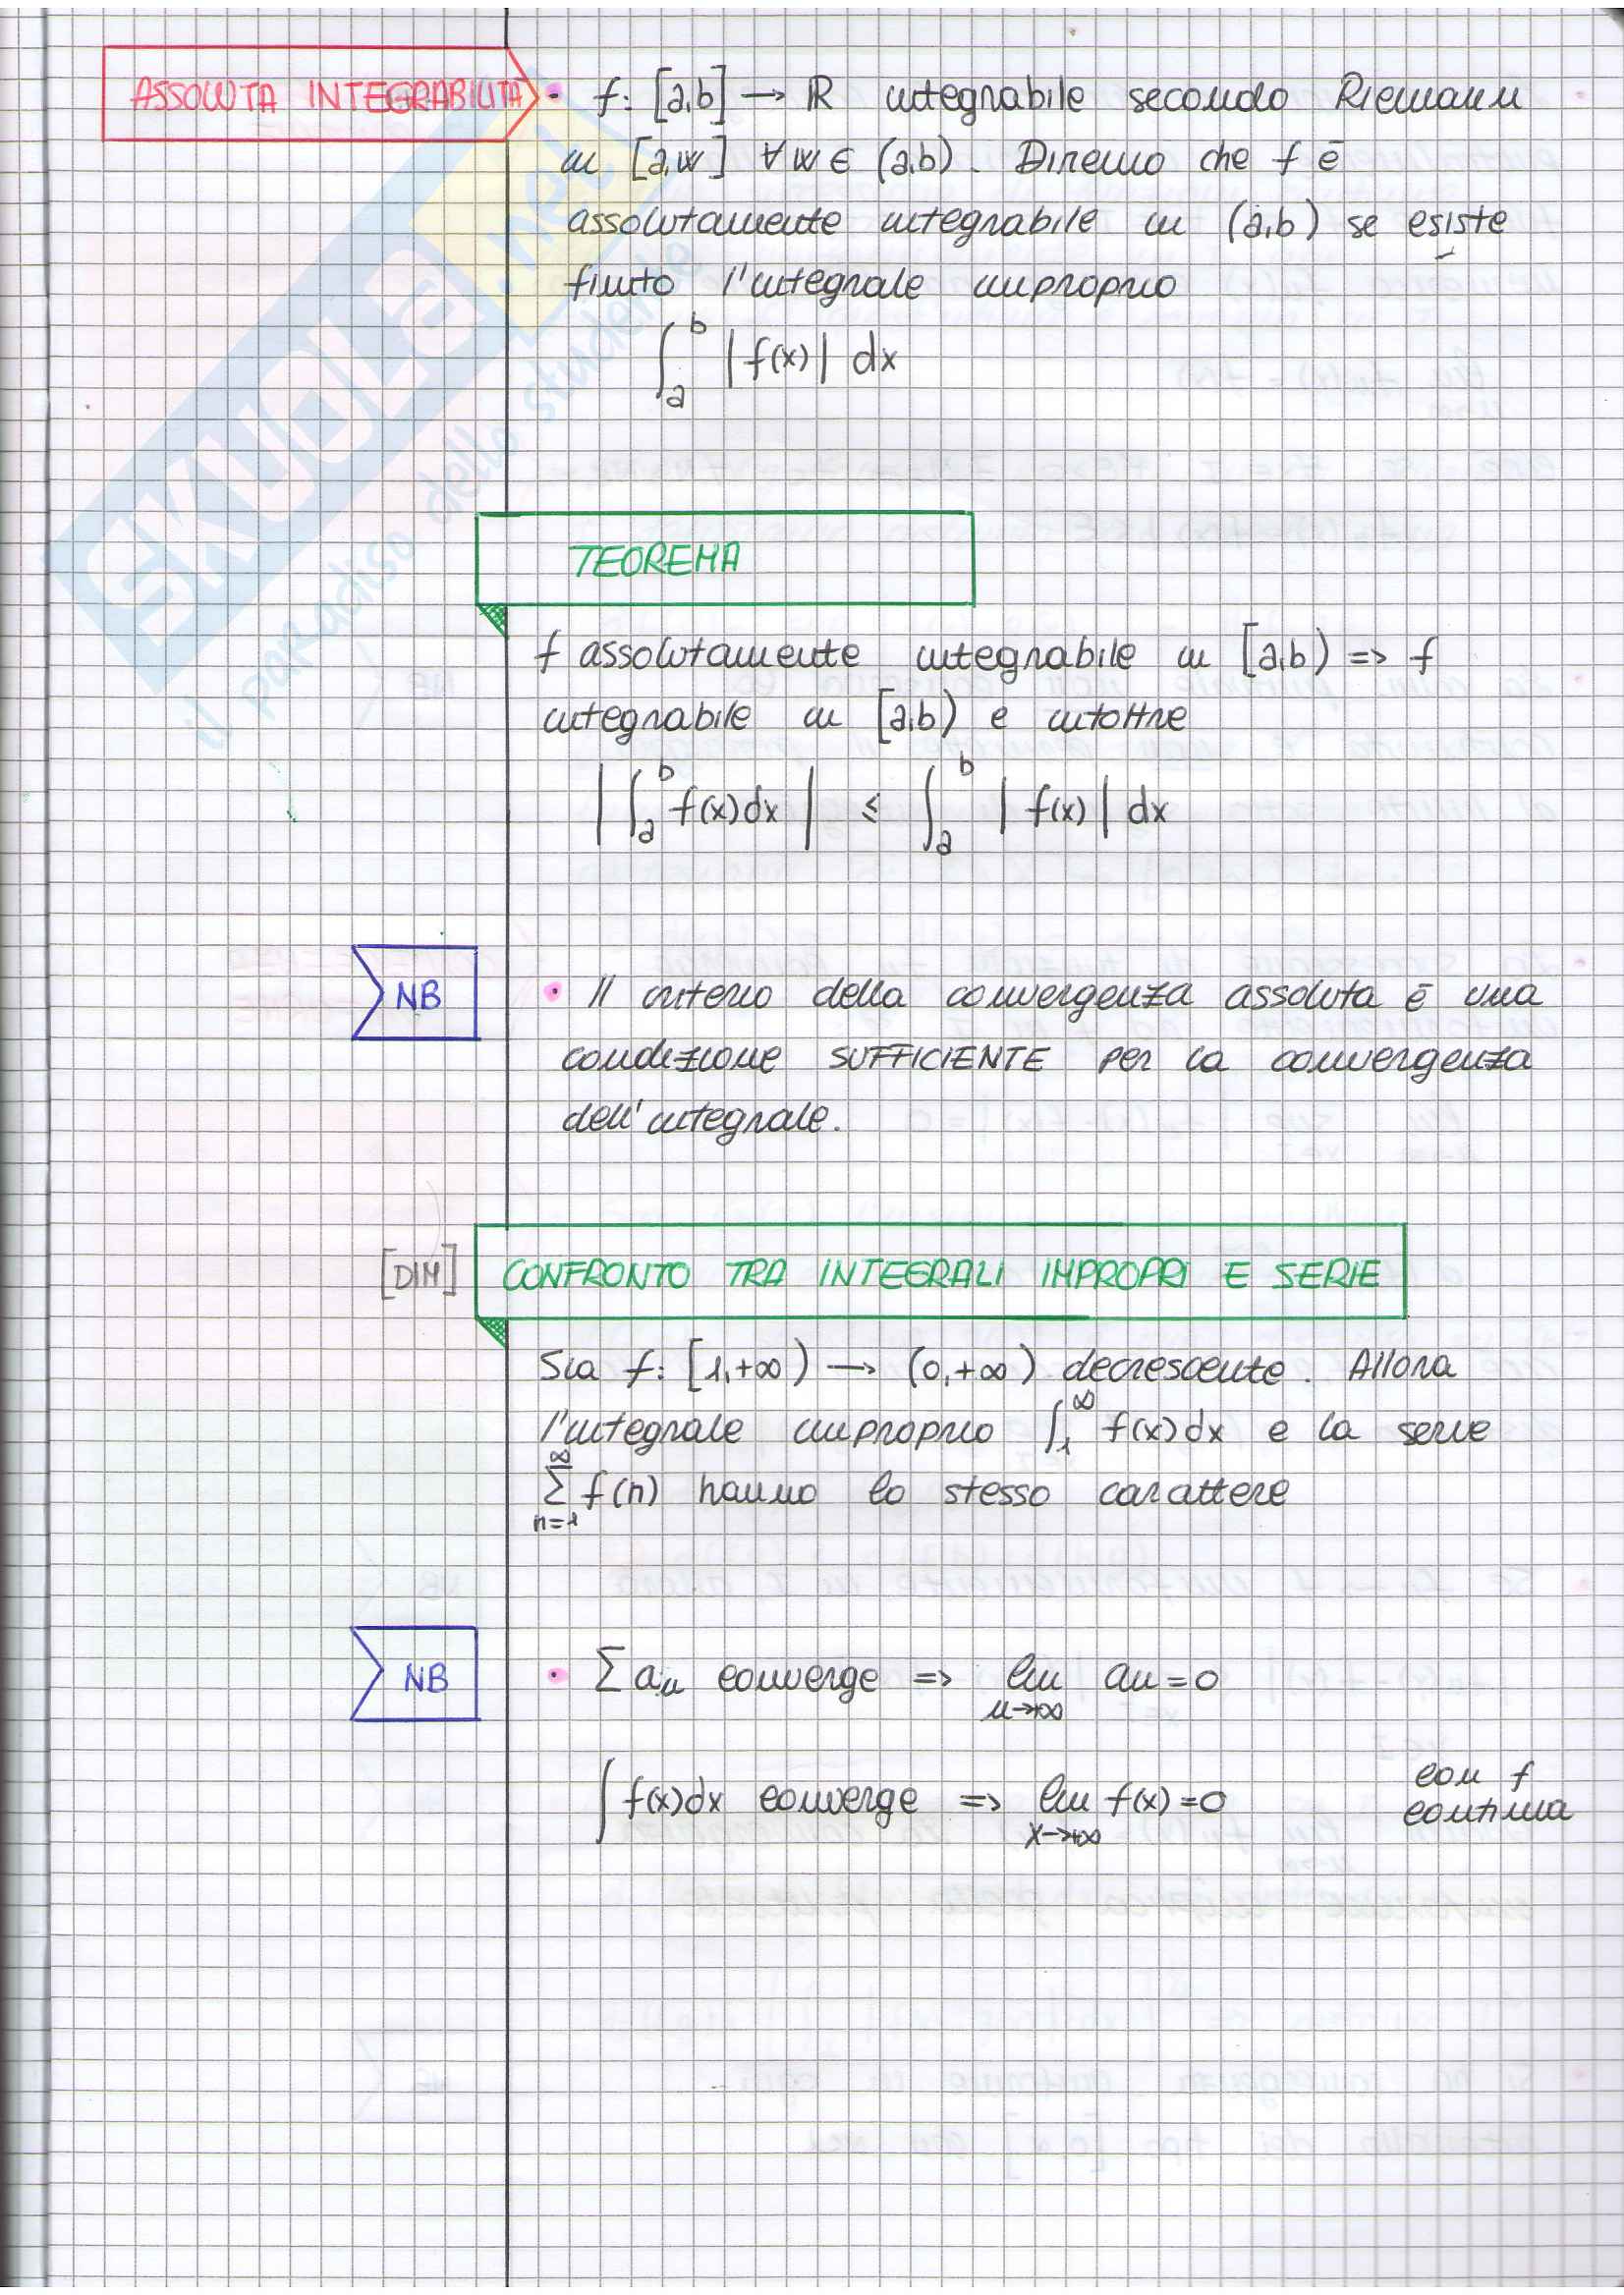 ASSOLUTA INTEGRABILITÀ
• f: [a,b] → ℝ integrabile secondo Riemann
in [a,w] ∀ w ∈ (a,b). Diremo che f è
assolutamente integrabile in (a,b) se esiste
finito l'integrale improprio
∫_a^b |f(x)| dx
TEOREMA
f assolutamente integrabile in [a,b) => f
integrabile in [a,b) e inoltre
|∫_a^b f(x)dx| ≤ ∫_a^b |f(x)| dx
NB
• Il criterio della convergenza assoluta è una
condizione SUFFICIENTE per la convergenza
dell'integrale.
[DIM] CONFRONTO TRA INTEGRALI IMPROPRI E SERIE
Sia f: [1,+∞) → (0,+∞) decrescente. Allora
l'integrale improprio ∫_1^∞ f(x)dx e la serie
∑_{n=1}^∞ f(n) hanno lo stesso carattere
NB
• ∑ a_n converge => lim_{n→∞} an = 0
∫ f(x)dx converge => lim_{x→+∞} f(x) = 0
con f
continua
SKUOLA.net
il paradiso dello studente